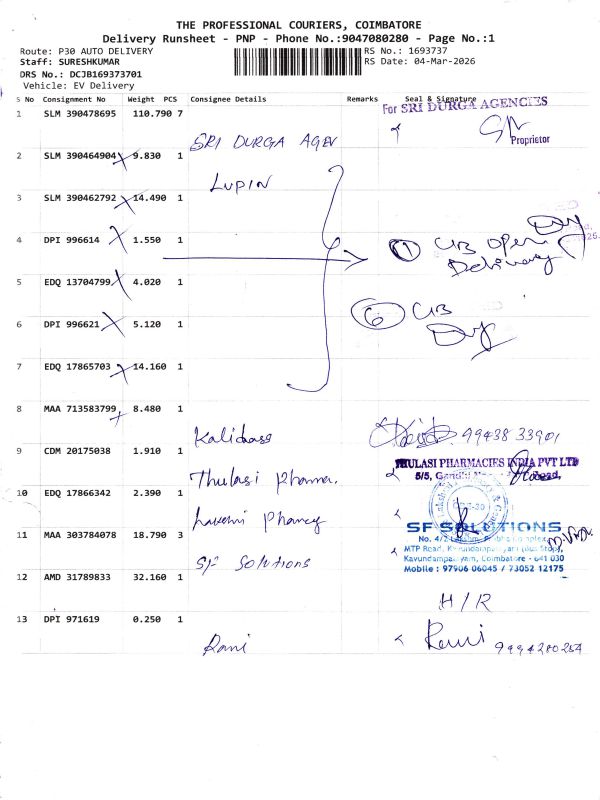 THE PROFESSIONAL COURIERS, COIMBATORE
Delivery Runsheet - PNP - Phone No.:9047080280 - Page No.:1
Route: P30 AUTO DELIVERY
RS No.: 1693737
Staff: SURESHKUMAR
RS Date: 04-Mar-2026
DRS No.: DCJB169373701
Vehicle: EV Delivery
S No Consignment No Weight PCS Consignee Details Remarks Seal & Signature
For SRI DURGA AGENCIES
1 SLM 390478695 110.790 7
Proprietor
SRI DURGA AGEN
2 SLM 390464904 9.830 1
LUPIN
3 SLM 390462792 14.490 1
4 DPI 996614 1.550 1
1 CIB Open
Delivery
5 EDQ 13704799 4.020 1
6 DPI 996621 5.120 1
6 CIB
7 EDQ 17865703 14.160 1
8 MAA 713583799 8.480 1
Kalidass
99438 33901
9 CDM 20175038 1.910 1
THULASI PHARMACIES INDIA PVT LTD
5/5, Gandhi
Thulasi Pharma.
10 EDQ 17866342 2.390 1
Laxmi Pharmcy
11 MAA 303784078 18.790 3
SF SOLUTIONS
No. 4/2
MTP Road, Kavundampalayam (Bus Stop),
Kavundampalayam, Coimbatore - 641 030
Mobile : 97906 06045 / 73052 12175
SF Solutions
12 AMD 31789833 32.160 1
H/R
13 DPI 971619 0.250 1
Rani
Rani
9994280254